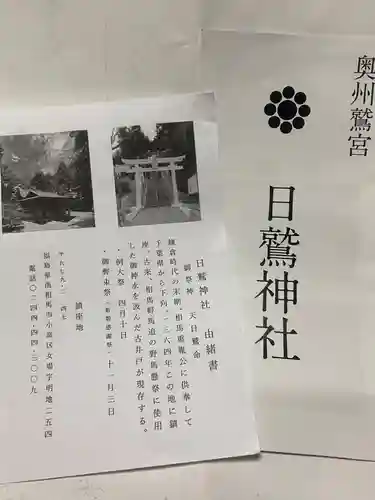 奥州鷲宮
日鷲神社
日鷲神社　由緒書
御祭神　天日鷲命
鎌倉時代の末期、相馬重胤公に供奉して
千葉県から下向、一三六四年この地に鎮
座。古来、相馬野馬追の野馬懸祭に使用
した御神水を汲んだ古井戸が現存する。
・例大祭　四月十日
・御新束祭（新穀感謝祭）十一月三日
鎮座地
福島県南相馬市小高区女場字明地二五四
電話〇二四四-四四-三〇〇九